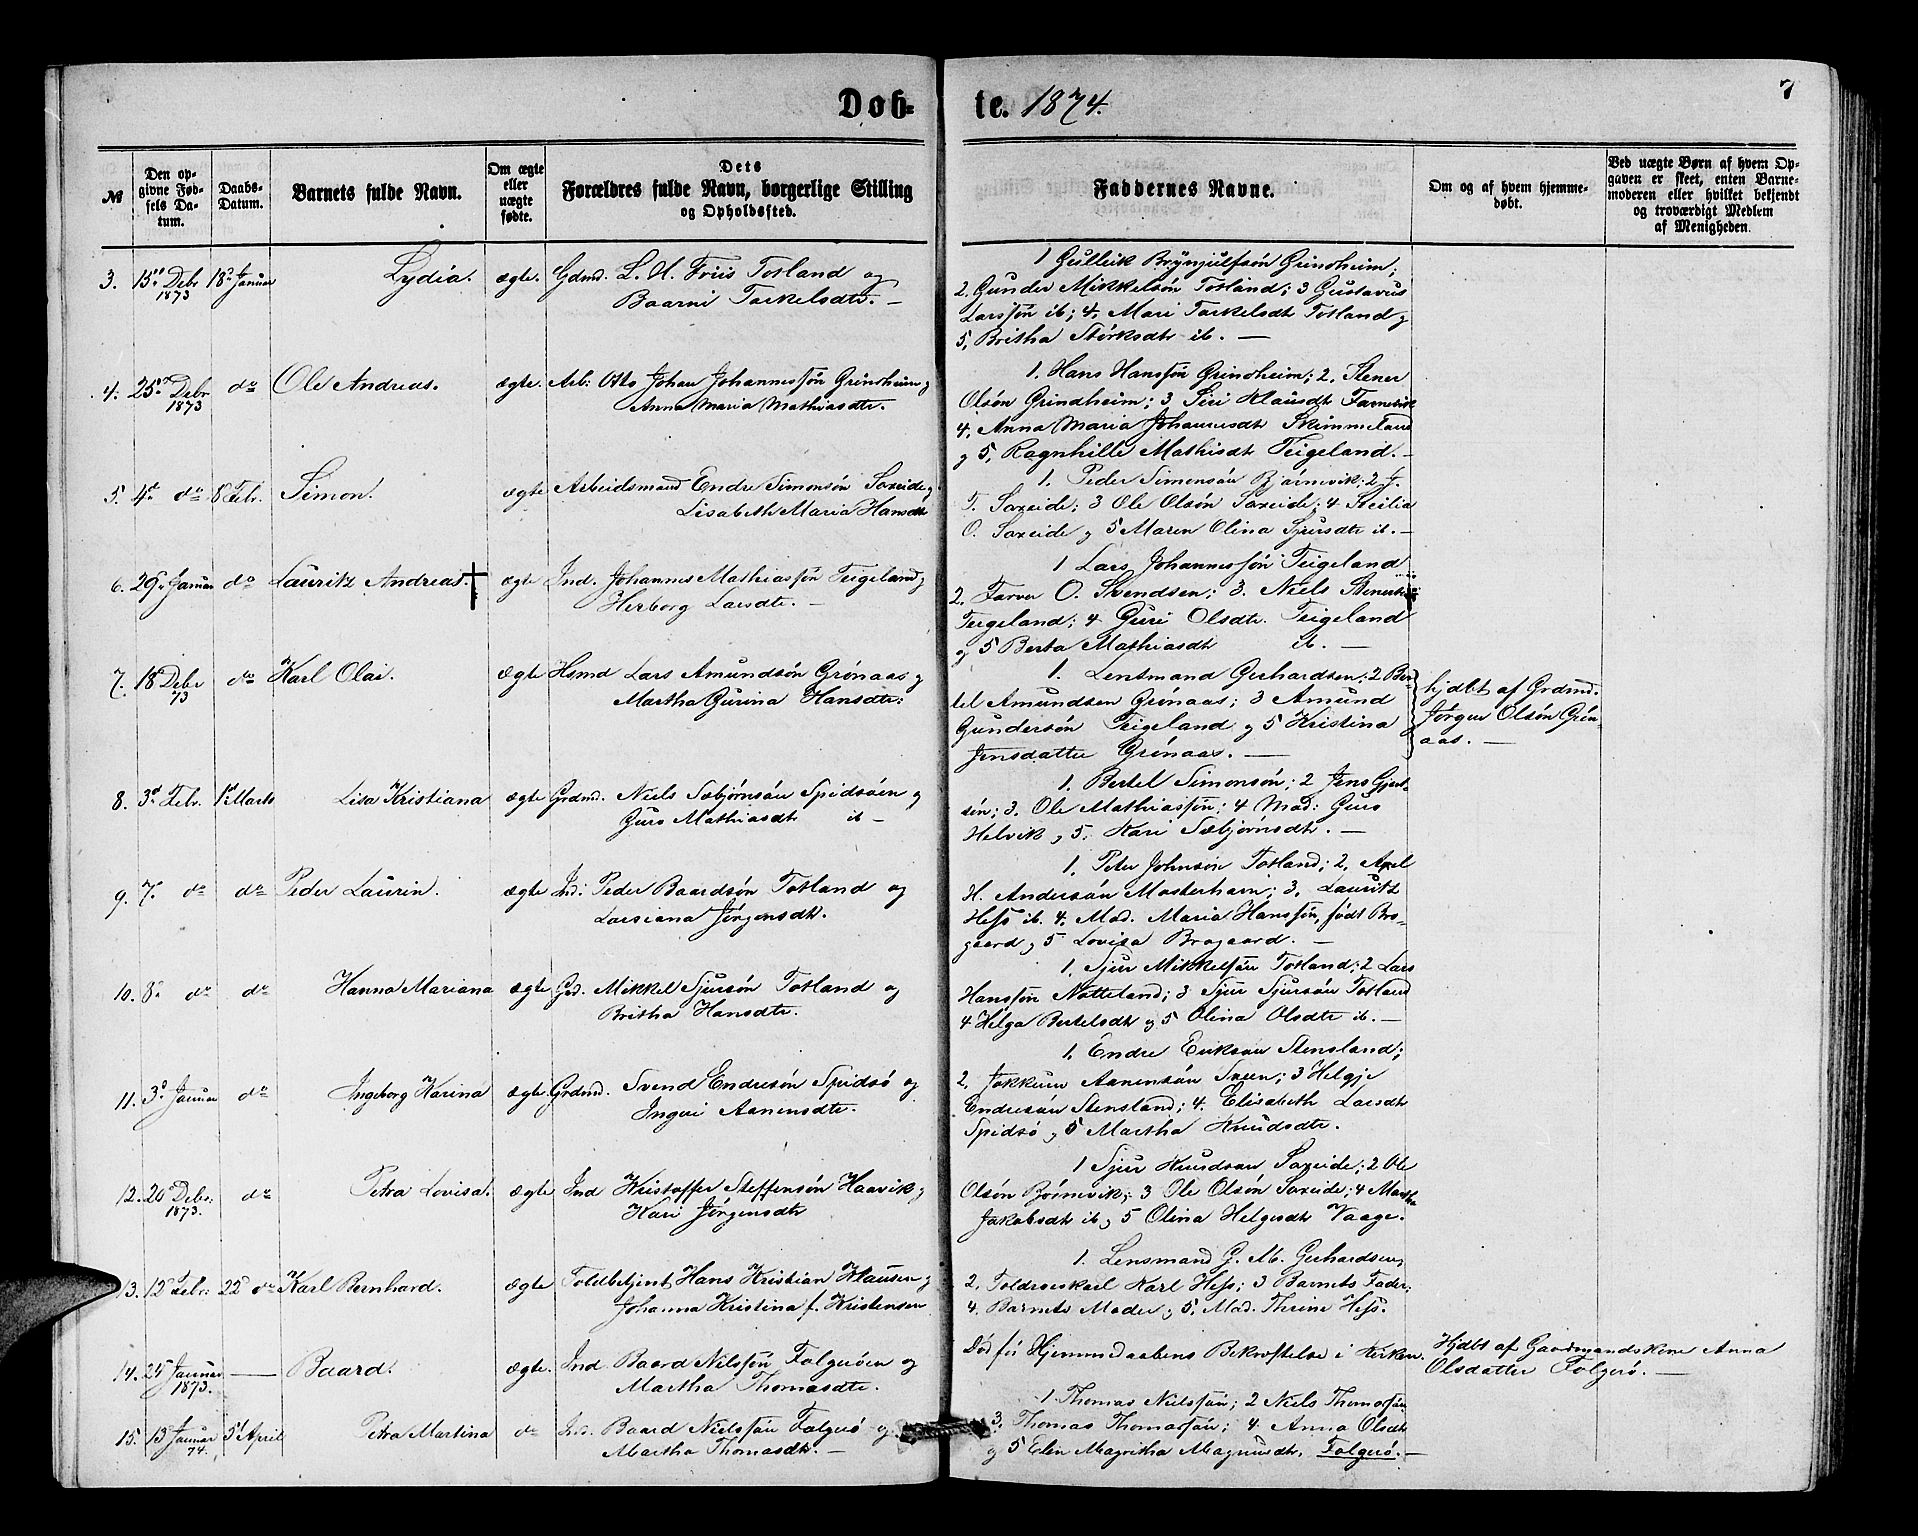 Døb-
te. 1874.
7
№
Den op-
givne Fød-
sels Da-
tum.
Daabs-
Datum.
Barnets fulde Navn.
Om ægte
eller
uægte
fødte.
Dets
Forældres fulde Navn, borgerlige Stilling
og Opholdssted.
Faddernes Navne.
Om og af hvem hjemme-
døbt.
Ved uægte Børn af hvem Op-
gaven er skeet, enten Barne-
moderen eller hvilket bekjendt
og troværdigt Medlem
af Menigheden.
3. 15de Debr 1873 18de Januar Lydia. ægte. Gdmd. L. H. Friis Totland og
Baarni Torkelsdtr. —
1 Gulleik Brynjulfsøn Grindheim;
2. Gunder Mikkelsøn Totland; 3 Gustavus
Larssøn ib; 4. Mari Torkelsdt Totland og
5, Britha Størksdtr ib. —
4. 25de Debr 1873 do Ole Andreas. ægte. Arb: Otto Johan Johannessøn Grindheim og
Anna Maria Mathiasdtr.
1. Hans Hanssøn Grindheim; 2. Stener
Olsøn Grindheim; 3 Siri Klausdt
4, Anna Maria Johannesdt Skimmeland
og 5, Ragnhille Mathisdt Teigeland. —
5. 4de do 8 Febr. Simon. ægte Arbeidsmand Endre Simonsøn Saxeide og
Lisabeth Maria Hansdtr
1. Peder Simonsøn Bjørnevik; 2
T. Saxeide; 3 Ole Olsøn Saxeide; 4 Secilia
O. Saxeide og 5 Maren Olina Sjursdtr ib. —
6. 29de Januar do Lauritz Andreas. † ægte Ind. Johannes Mathiassøn Teigeland og
Herborg Larsdtr. —
1 Lars Johannessøn Teigeland
2. Farver O. Svendsen; 3. Niels
Teigeland; 4 Guri Olsdtr. Teigeland
og 5 Berta Mathiasdt ib. —
7. 18 Debr 73 do Karl Olai. ægte Hsmd Lars Amundsøn Grønaas og
Martha Gurina Hansdtr:
1. Lensmand Gerhardsen; 2 Ber-
tel Amundsen Grønaas; 3 Amund
Gundersøn Teigeland og 5 Kristina
Jensdatter Grønaas. —
hjdbt af Grdmd.
Jørgen Olsøn Grøn-
aas. —
8. 3de Febr. 1ste Marts Lisa Kristiana ægte Grdmd. Niels Sæbjørnsøn Spidsøen og
Guro Mathiasdt ib —
1. Bertel Simonsøn; 2 Jens Gjert-
søn; 3. Ole Mathiassøn; 4 Mad: Guro
Helvik og 5. Kari Sæbjørnsdtr. —
9. 7. do do Peder Laurin. ægte Ind: Peder Baardsøn Totland og
Larsiana Jørgensdtr.
1. Peter Johnsøn Totland; 2, Axel
H. Andersøn Mosterhavn; 3, Lauritz
Hess ib. 4. Mad. Maria Hanssøn, født Bro-
gaard og 5 Lovisa Brogaard. —
10. 8de do do Hanna Mariana ægte Grd. Mikkel Sjursøn Totland og
Britha Hansdtr.
1, Sjur Mikkelsøn Totland; 2 Lars
Hanssøn Notteland; 3 Sjur Sjursøn Totland
4 Helga Bertelsdt og 5 Olina Olsdtr ib. —
11. 3de Januar do Ingeborg Karina ægte Grdmd. Svend Endresøn Spidsø og
Ingeri Aanensdtr.
1. Endre Eriksøn Stensland;
2. Jokkum Aanensøn Sveen; 3 Helgje
Endresøn Stensland; 4. Elisabeth Larsdtr
Spidsø og 5 Martha Knudsdtr.
12. 20 Debr: 1873. do Petra Lovisa. ægte Ind Kristoffer Steffensøn Haavik og
Kari Jørgensdtr
1 Sjur Knudsøn Saxeide; 2 Ole
Olsøn Børnevik; 3 Ole Olsøn Saxeide; 4 Martha
Jakobsdt ib og 5 Olina Helgesdt Vaage.
13. 12te Febr: 22de do Karl Bernhard. ægte Toldbetjent Hans Kristian Klausen og
Johanna Kristina f. Kristensen
1. Lensmand G. M. Gerhardsen;
2, Toldroerskarl Karl Hess; 3 Barnets Fader;
4. Barnets Moder og 5, Mad. Thrine Hess.
14. 25 Januar 1873. — Baard. ægte. Ind Baard Nilssøn Folgerøen og
Martha Thomasdtr.
Død før Hjemmedaabens Bekræftelse i Kirken.
Hjdbt af Gaardmandskone Anna
Olsdatter Folgerø. —
15. 13 Januar 74. 5te April Petra Martina do Ind. Baard Nielssøn Folgerø og
Martha Thomasdt. —
1 Thomas Nielssøn; 2 Niels Thomassøn
3. Thomas Thomassøn; 4. Anna Olsdt
og 5 Elen Magritha Magnusdt, Folgerø. —